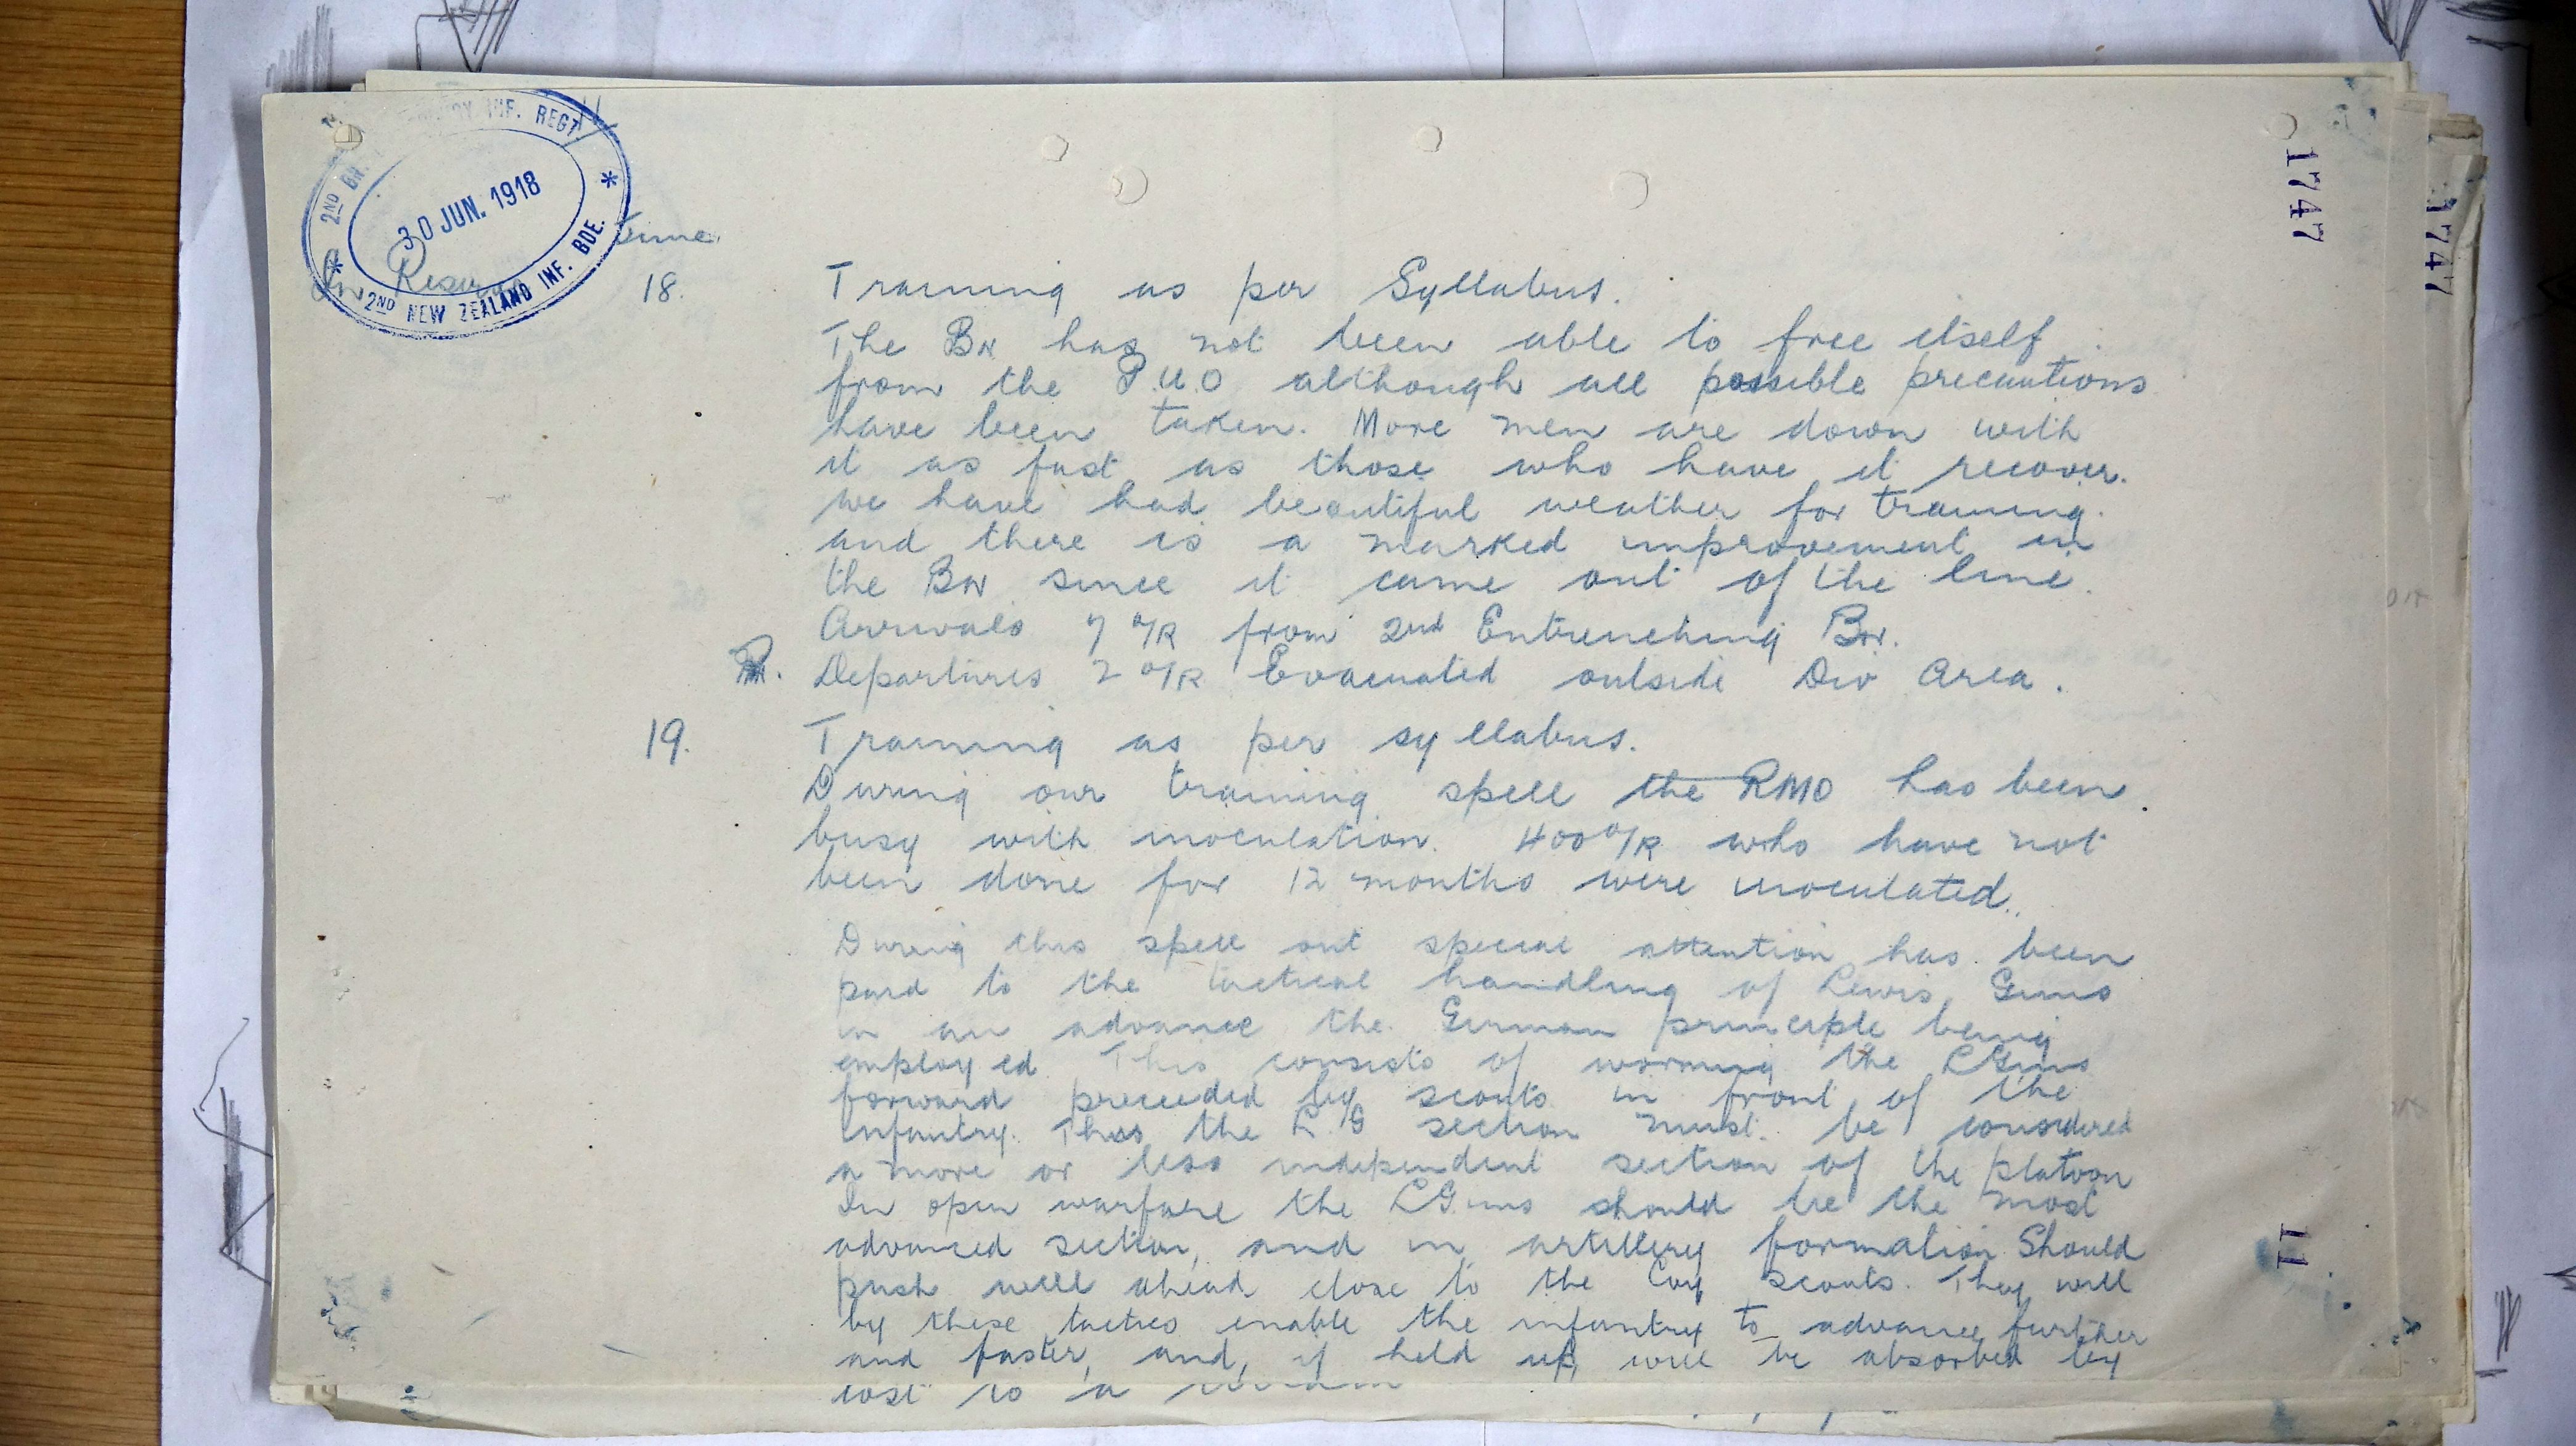 2ND BN. INF. REGT.
30 JUN. 1918
2ND NEW ZEALAND INF. BDE.
1747
1747
June
In Reserve 18. Training as per Syllabus.
The BN has not been able to free itself
from the P.U.O although all possible precautions
have been taken. More men are down with
it as fast as those who have it recover.
we have had beautiful weather for training.
and there is a marked improvement in
the BN since it came out of the line.
Arrivals 7 O/R from 2nd Entrenching BN.
Departures 2 O/R Evacuated outside Div Area.
19. Training as per syllabus.
During our training spell the RMO has been
busy with inoculation. 400 O/R who have not
been done for 12 months were inoculated.
During this spell out special attention has been
paid to the tactical handling of Lewis Guns
in an advance the German principle being
employed. This consists of worming the LGuns
forward preceded by scouts in front of the
Infantry. Thus the L G section must be considered
a more or less independent section of the platoon
In open warfare the LGuns should be the most
advanced section, and in artillery formation Should
push well ahead close to the Coy scouts. They will
by these tactics enable the infantry to advance further
and faster, and, if held up, will be absorbed by
11